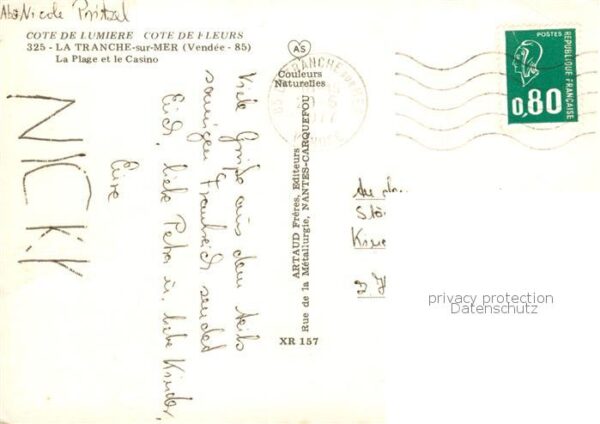 Abs. Nicole
COTE DE LUMIERE COTE DE FLEURS
325 - LA TRANCHE-sur-MER (Vendée - 85)
La Plage et le Casino
AS
Couleurs
Naturelles
LA TRANCHE SUR MER
POSTES
REPUBLIQUE FRANÇAISE
0,80
Viele Grüße aus dem
sonnigen Frankreich sendet
Euch, liebe Petra u. liebe Kinder,
Eure
NICKY
ARTAUD Frères, Editeurs
Rue de la Métallurgie, NANTES-CARQUEFOU
XR 157
privacy protection
Datenschutz